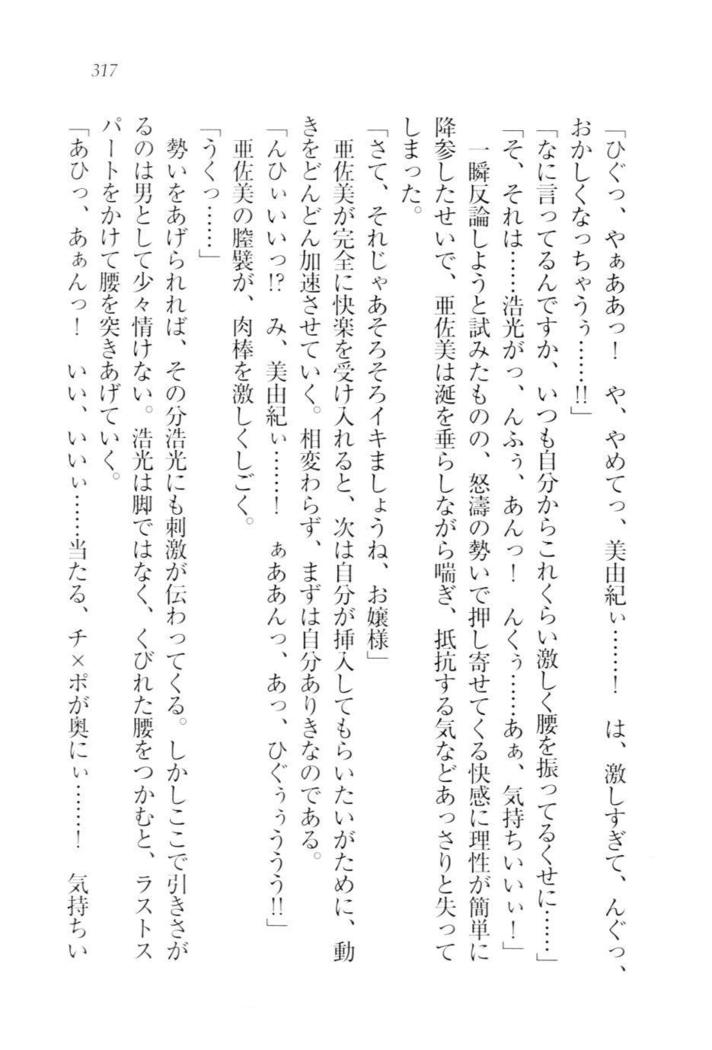 317
「ひぐっ、やぁああっ！　や、やめてっ、美由紀ぃ……！　は、激しすぎて、んぐっ、
おかしくなっちゃうぅ……!!」
「なに言ってるんですか、いつも自分からこれくらい激しく腰を振ってるくせに……」
「そ、それは……浩光がっ、んふぅ、あんっ！　んくぅ……あぁ、気持ちいいぃ！」
一瞬反論しようと試みたものの、怒濤の勢いで押し寄せてくる快感に理性が簡単に
降参したせいで、亜佐美は涎を垂らしながら喘ぎ、抵抗する気などあっさりと失って
しまった。
「さて、それじゃあそろそろイキましょうね、お嬢様」
亜佐美が完全に快楽を受け入れると、次は自分が挿入してもらいたいがために、動
きをどんどん加速させていく。相変わらず、まずは自分ありきなのである。
「んひぃいいっ!?　み、美由紀ぃ……！　ぁああんっ、あっ、ひぐぅぅううう!!」
亜佐美の膣襞が、肉棒を激しくしごく。
「うくっ……」
勢いをあげられれば、その分浩光にも刺激が伝わってくる。しかしここで引きさが
るのは男として少々情けない。浩光は脚ではなく、くびれた腰をつかむと、ラストス
パートをかけて腰を突きあげていく。
「あひっ、あぁんっ！　いい、いいぃ……当たる、チ×ポが奥にぃ……！　気持ちい